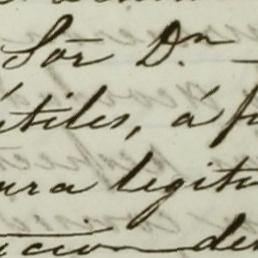 Sōr Dⁿ
útiles, á f
ura legiti
icion de